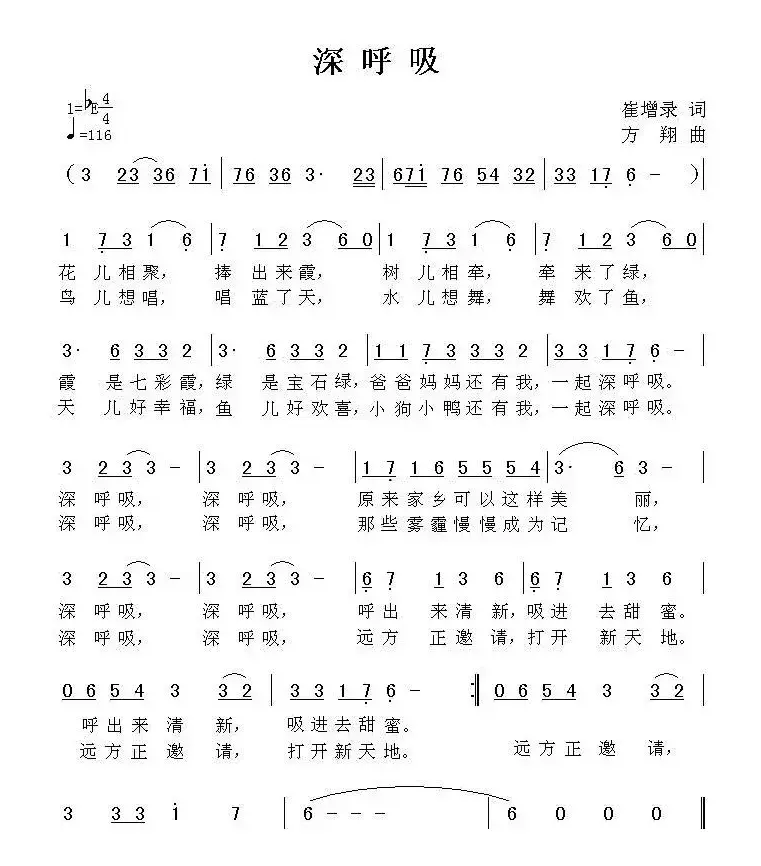 深呼吸
1=♭E 4/4
崔增录 词
♩=116
方 翔 曲
( 3 23 36 7i | 76 36 3· 23 | 67i 76 54 32 | 33 17 6 - ) |
1 7 3 1 6 | 7 1 2 3 6 0 | 1 7 3 1 6 | 7 1 2 3 6 0 |
花 儿 相 聚， 捧 出 来 霞， 树 儿 相 牵， 牵 来 了 绿，
鸟 儿 想 唱， 唱 蓝 了 天， 水 儿 想 舞， 舞 欢 了 鱼，
3· 6 3 3 2 | 3· 6 3 3 2 | 1 1 7 3 3 3 2 | 3 3 1 7 6 - |
霞 是 七 彩 霞，绿 是 宝 石 绿，爸 爸 妈 妈 还 有 我，一 起 深 呼 吸。
天 儿 好 幸 福，鱼 儿 好 欢 喜，小 狗 小 鸭 还 有 我，一 起 深 呼 吸。
3 2 3 3 - | 3 2 3 3 - | 1 7 1 6 5 5 5 4 | 3· 6 3 - |
深 呼 吸， 深 呼 吸， 原 来 家 乡 可 以 这 样 美 丽，
深 呼 吸， 深 呼 吸， 那 些 雾 霾 慢 慢 成 为 记 忆，
3 2 3 3 - | 3 2 3 3 - | 6 7 1 3 6 | 6 7 1 3 6 |
深 呼 吸， 深 呼 吸， 呼 出 来 清 新，吸 进 去 甜 蜜。
深 呼 吸， 深 呼 吸， 远 方 正 邀 请，打 开 新 天 地。
0 6 5 4 3 3 2 | 3 3 1 7 6 - :‖ 0 6 5 4 3 3 2 |
呼 出 来 清 新， 吸 进 去 甜 蜜。
远 方 正 邀 请， 打 开 新 天 地。 远 方 正 邀 请，
3 3 3 i 7 | 6 - - - | 6 0 0 0 ‖